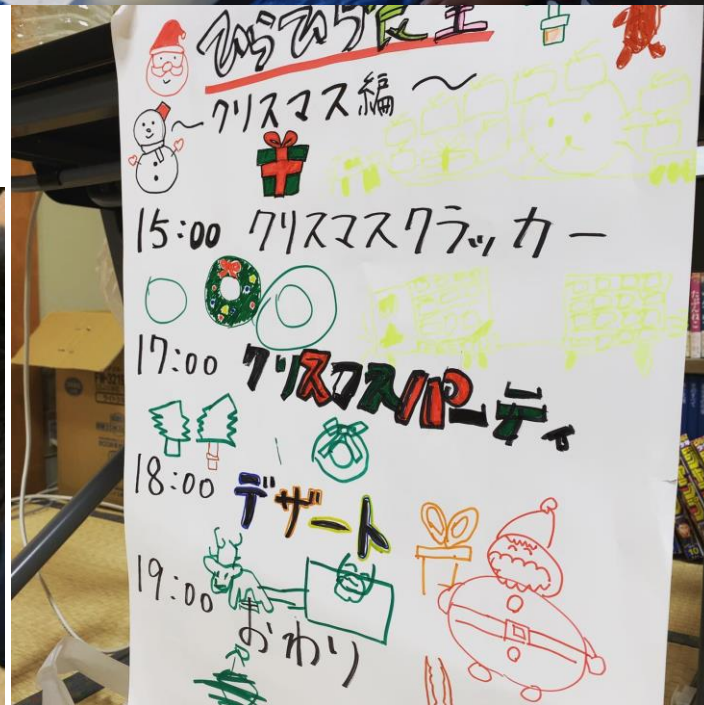 〜クリスマス編〜
15:00 クリスマスクラッカー
17:00 クリスマスパーティ
18:00 デザート
19:00 おわり